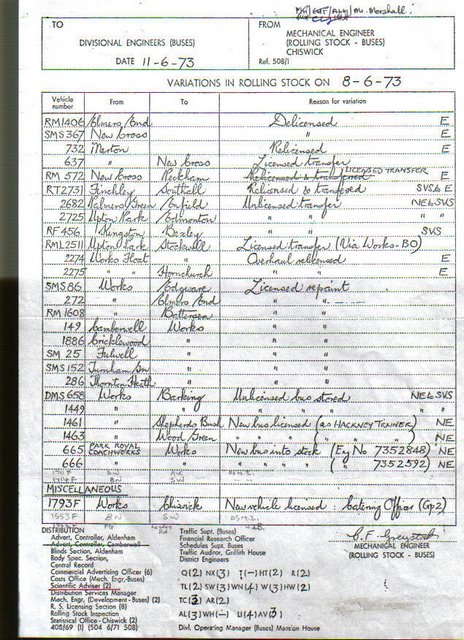 TO
FROM
DIVISIONAL ENGINEERS (BUSES)
MECHANICAL ENGINEER
(ROLLING STOCK - BUSES)
CHISWICK
DATE 11-6-73
Ref. 508/1
VARIATIONS IN ROLLING STOCK ON 8-6-73
Vehicle number From To Reason for variation
RM1406 Elmers End Delicensed E
SMS367 New Cross " E
732 Merton Relicensed E
637 " New Cross Licensed transfer
RM 572 New Cross Peckham LICENSED TRANSFER E
RT2731 Finchley Southall Relicensed & transferred SVS & E
2682 Palmers Green Enfield Unlicensed transfer NE & SVS
2725 Upton Park Edmonton " " "
RF 456 Kingston Bexley " SVS
RML2511 Upton Park Stockwell Licensed transfer (Via Works-BO)
2274 Works Float Overhaul relicensed E
2275 " " Hornchurch " E
SMS 86 Works Edgware Licensed repaint
272 " Elmers End "
RM 1608 " Battersea "
149 Camberwell Works "
1886 Cricklewood " "
SM 25 Fulwell " "
SMS 152 Turnham Gn " "
286 Thornton Heath " "
DMS 658 Works Barking Unlicensed bus stored NE & SVS
1449 " " " " " " "
1461 " Shepherds Bush New bus licensed (as HACKNEY TRAINER) NE
1463 " Wood Green " " " ( " " ) NE
665 PARK ROYAL COACHWORKS Works New bus into stock (Eng No 7352848) NE
666 " " " ( " 7352592) NE
MISCELLANEOUS
1793F Works Chiswick New vehicle licensed : Catering Officer (Gp2)
C.F. Greystock
MECHANICAL ENGINEER
(ROLLING STOCK - BUSES)
DISTRIBUTION
Advert, Controller, Aldenham
Advert, Controller, Camberwell
Blinds Section, Aldenham
Body Spec. Section,
Central Record
Commercial Advertising Officer (6)
Costs Office (Mech. Engr-Buses)
Scientific Adviser (2)
Distribution Services Manager
Mech. Engr, (Development - Buses) (2)
R. S. Licensing Section (8)
Rolling Stock Programmes
Statistical Office - Chiswick (2)
408/69 (1) (504 6/71 508)
Traffic Supt. (Buses)
Financial Research Officer
Schedules Supt. Buses
Traffic Auditor, Griffith House
District Engineers
Divl. Operating Manager (Buses) Mansion House